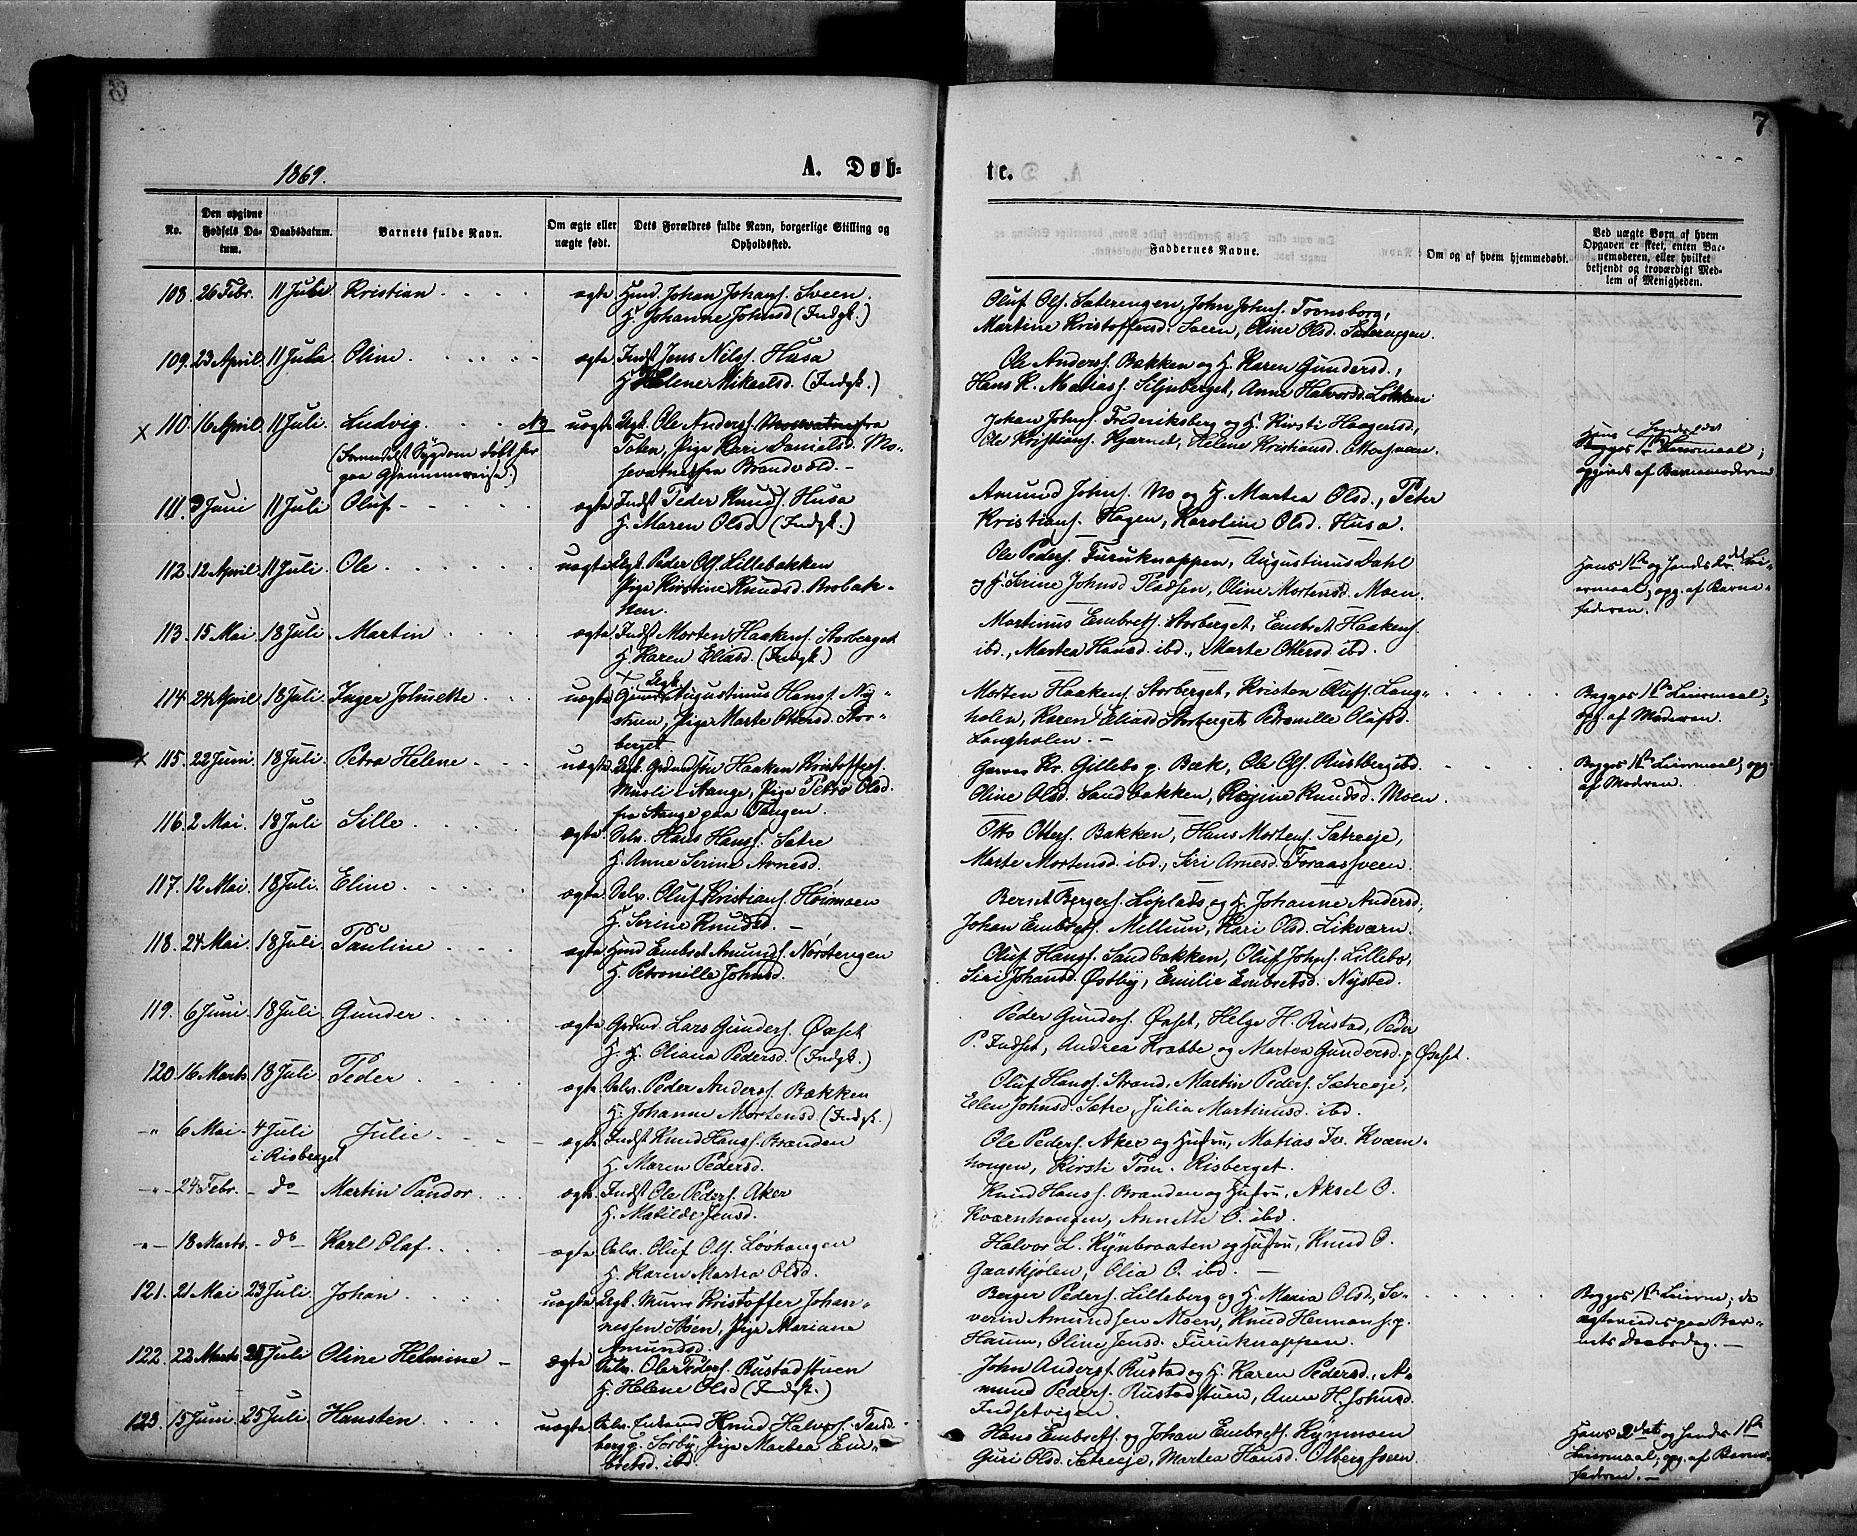 7
1869.
A. Døb-
te.
No.
Den opgivne Fødsels Datum.
Daabsdatum.
Barnets fulde Navn.
Om ægte eller uægte født.
Dets Forældres fulde Navn, borgerlige Stilling og Opholdssted.
Faddernes Navne.
Om og af hvem hjemmedøbt.
Ved uægte Børn af hvem Opgaven er skeet, enten Barnemoderen, eller hvilket bekjendt og troværdigt Medlem af Menigheden.
108. 26 Febr. 11 Juli Kristian ægte Johan Johans. Sveen.
H. Johanne Johnsd (Indgk.)
Oluf Ols. Sæterengen, John Johns. Tronsborg,
Martine Kristoffersd. Sveen, Oline Olsd. Sæterengen.
109. 23 April. 11 Juli Oline ægte Indst Jens Nils. Husa
H. Helene Mikaelsd. (Indgk.)
Ole Anders. Bakken og H. Karen Gundersd.,
Hans K. Matias. Siljuberget, Anne Halvorsd. Løkken
x 110. 16 April. 11 Juli Ludvig. uægte Ugk. Ole Anders. fra
Toten, Pige Kari Danielsd. Mo-
sevatnet fra Brandvold.
Johan Johns. Frederiksberg og H. Kirsti Haagensd.,
Ole Kristians. Kjernet, Helene Kristiansd. Ottersveen.
Leiermaal;
opgivet af Barnemoderen
111. 3 Juni 11 Juli Oluf ægte Indst Peder Knuds. Husa
H. Maren Olsd (Indgk.)
Amund Johns. Mo og H. Martea Olsd., Peter
Kristians. Hagen, Karoline Olsd. Husa.
112. 12 April. 11 Juli Ole uægte Ugk. Peder Ols. Lillebakken
Pige Kirstine Knudsd. Brobak-
ken.
Ole Peders. Furuknappen, Augustinus Dahl
og H. Serine Johnsd Pladsen, Oline Mortensd. Moen.
Hans 1ste og hendes Lei-
ermaal; opg. af Barne-
faderen.
113. 15 Mai 18 Juli Martin ægte Indst Morten Haakens. Storberget
H. Karen Eliasd. (Indgk.)
Martinus Embrets. Storberget, Embret Haakens.
ibd., Martea Hansd. ibd., Marte Ottersd. ibd.
114. 24 April 18 Juli Inger Johnette uægte Augustinus Hans. Ny-
stuen, Pige Marte Ottersd. Stor-
berget
Morten Haakens. Storberget, Kristen Olufs. Lang-
holen, Karen Eliasd Storberget, Petronille Olufsd.
Langholen.
Begges 1ste Leiermaal;
opg. af Moderen.
x 115. 22 Juni 18 Juli Petra Helene uægte Ugk. Grdmdsøn Haaken Kristoffers.
Musli i Stange, Pige Petra Olsd.
fra Stange paa Tangen.
Gillebo p. Bæk, Ole Ols. Rustberg ibd.
Oline Olsd. Sandbakken, Regine Knudsd. Moen.
Begges 1ste Leiermaal; opg
af Moderen.
116. 2 Mai. 18 Juli Sille ægte Selv. Hans Hans. Sætre
H. Anne Serine Arnesd.
Otto Otters. Bakken, Hans Mortens. Sætreeje,
Marte Mortensd. ibd., Siri Arnesd. Foraassveen.
117. 12 Mai. 18 Juli Eline ægte Selv. Oluf Kristians. Høimoen
H. Serine Knudsd.
Bernt Bergers. Løplads og H. Johanne Andersd,
Johan Embrets. Mellum, Kari Olsd. Likværn.
118. 24 Mai. 18 Juli Pauline ægte Embret Amunds. Norstengen
H. Petronille Johnsd.
Oluf Hans. Sandbakken, Oluf Johns. Lillebo,
Siri Johansd. Østby, Emilie Embretsd. Nysted.
119. 6 Juni 18 Juli Gunder ægte Grdmd Lars Gunders. Øxset
H. Oliana Pedersd. (Indgk.)
Peder Gunders. Øxset, Helge H. Rustad, Peder
P. Indset, Andrea Krabbe og Martea Gundersd. p Øxset.
120. 16 Marts 18 Juli Peder ægte Selv. Peder Anders. Bækken
H. Johanne Mortensd (Indgk.)
Oluf Hans. Strand, Martin Peders. Sætreeje,
Elen Johnsd. Sætre, Julia Martinusd. ibd.
-"- 6 Mai 4 Juli i Risberget Julie ægte Indst Knud Hans. Brænden
H. Maren Pedersd.
Ole Peders. Aker og Hustru, Matias Kværn-
hongen, Kirsti Tom. Risberget.
-"- 24 Febr. do Martin Pandor ægte Indst Ole Peders. Aker
H. Matilde Jensd.
Knud Hans. Brænden og Hustru, Aksel O.
Kværnhongen, Annette O. ibd.
-"- 18 Marts do Karl Olaf ægte Selv. Oluf Ols. Løvhaugen
H. Karen Martea Olsd.
Halvor L. Kynbraaten og Hustru, Knud O.
Gaaskjølen, Olia O. ibd.
121. 21 Mai 23 Juli Johan uægte Ugk. Murer Kristoffer Johan-
nessen Moen, Pige Mariane
Amundsd.
Berger Peders. Lilleberg og H. Maria Olsd., Se-
verin Amundsen Moen, Knud Hermans. p.
Haum, Oline Jensd. Furuknappen.
Begges 1ste Leierm; de
ægtevieds paa Bar-
nets Daabsdag.
122. 22 Marts 25 Juli Oline Helmine ægte Selv. Ole Peders. Rustadstuen
H. Helene Olsd (Indgk.)
John Anders. Rustad og H. Karen Pedersd., A-
mund Peders. Rustadstuen, Anne H. Johnsd.
Indsetvigen.
123. 5 Juni 25 Juli Hansten uægte Selv. Enkemd Knud Halvors. Tand-
berg p. Sorby, Pige Martea Em-
bretsd. ibd
Hans Embrets. og Johan Embrets. Kynmoen
Guri Olsd. Sætreeje, Martea Hansd. Olbergsveen.
Hans 2det og hendes 1ste
Leiermaal; opg. af Barne-
faderen.